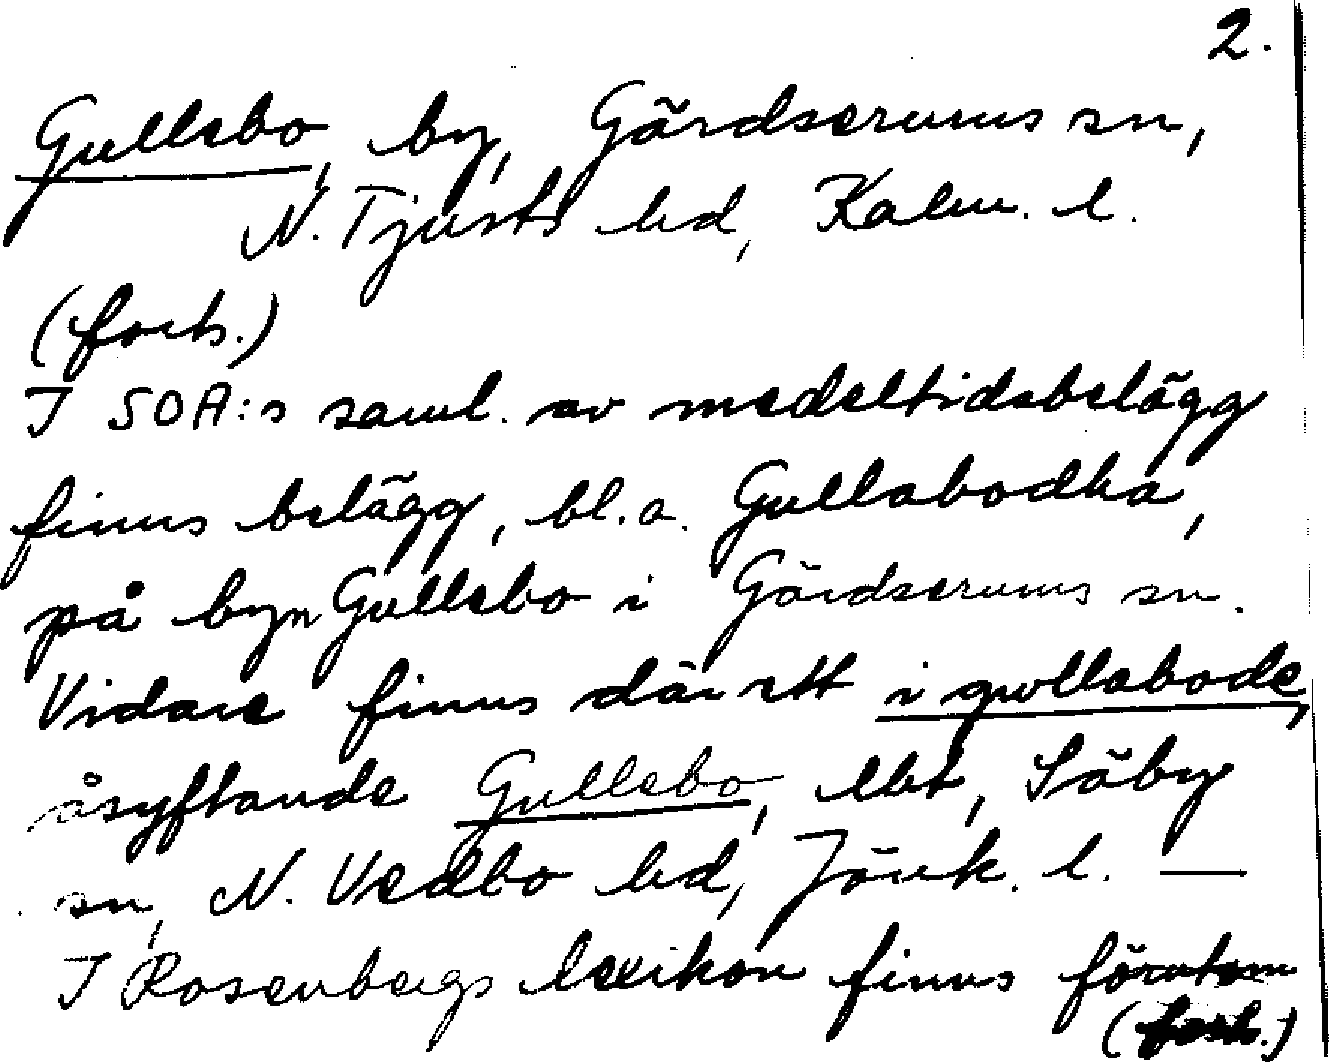 2.
Gullebo, by, Gärdserums sn,
N. Tjusts hd, Kalm. l.
(forts.)
I SOA:s saml. av medeltidsbelägg
finns belägg, bl.a. Gullabodha,
på byn Gullebo i Gärdserums sn.
Vidare finns där ett i gwllabode,
åsyftande Gullebo, ebt, Säby
sn, N. Vedbo hd, Jönk. l. —
I Rosenbergs lexikon finns förutom
(forts.)